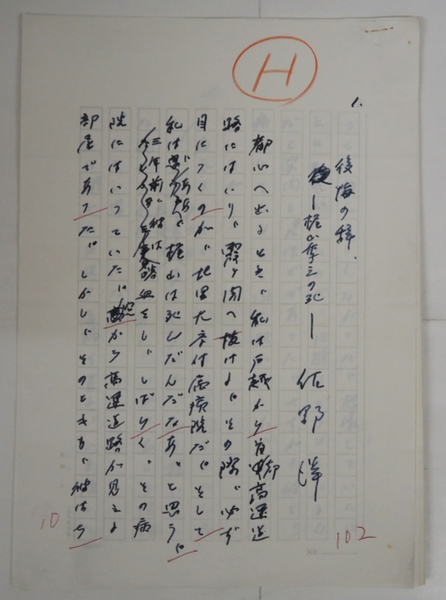 H
1.
後悔の辞
―梶山季之の死―
佐野洋
都心へ出るとき、私は戸越から首都高速道
路にはいり、霞ヶ関へ抜ける。その際、必ず
目につくのが、地里大付属病院だ。そして
私は、あゝ、梶山は死んだんだなあ、と思う。
三年前に彼は 血をし、しばらく、その病
院にはいっていた。 から高速道路が見える
部屋であった。しかし、そのときも、彼は
10
102